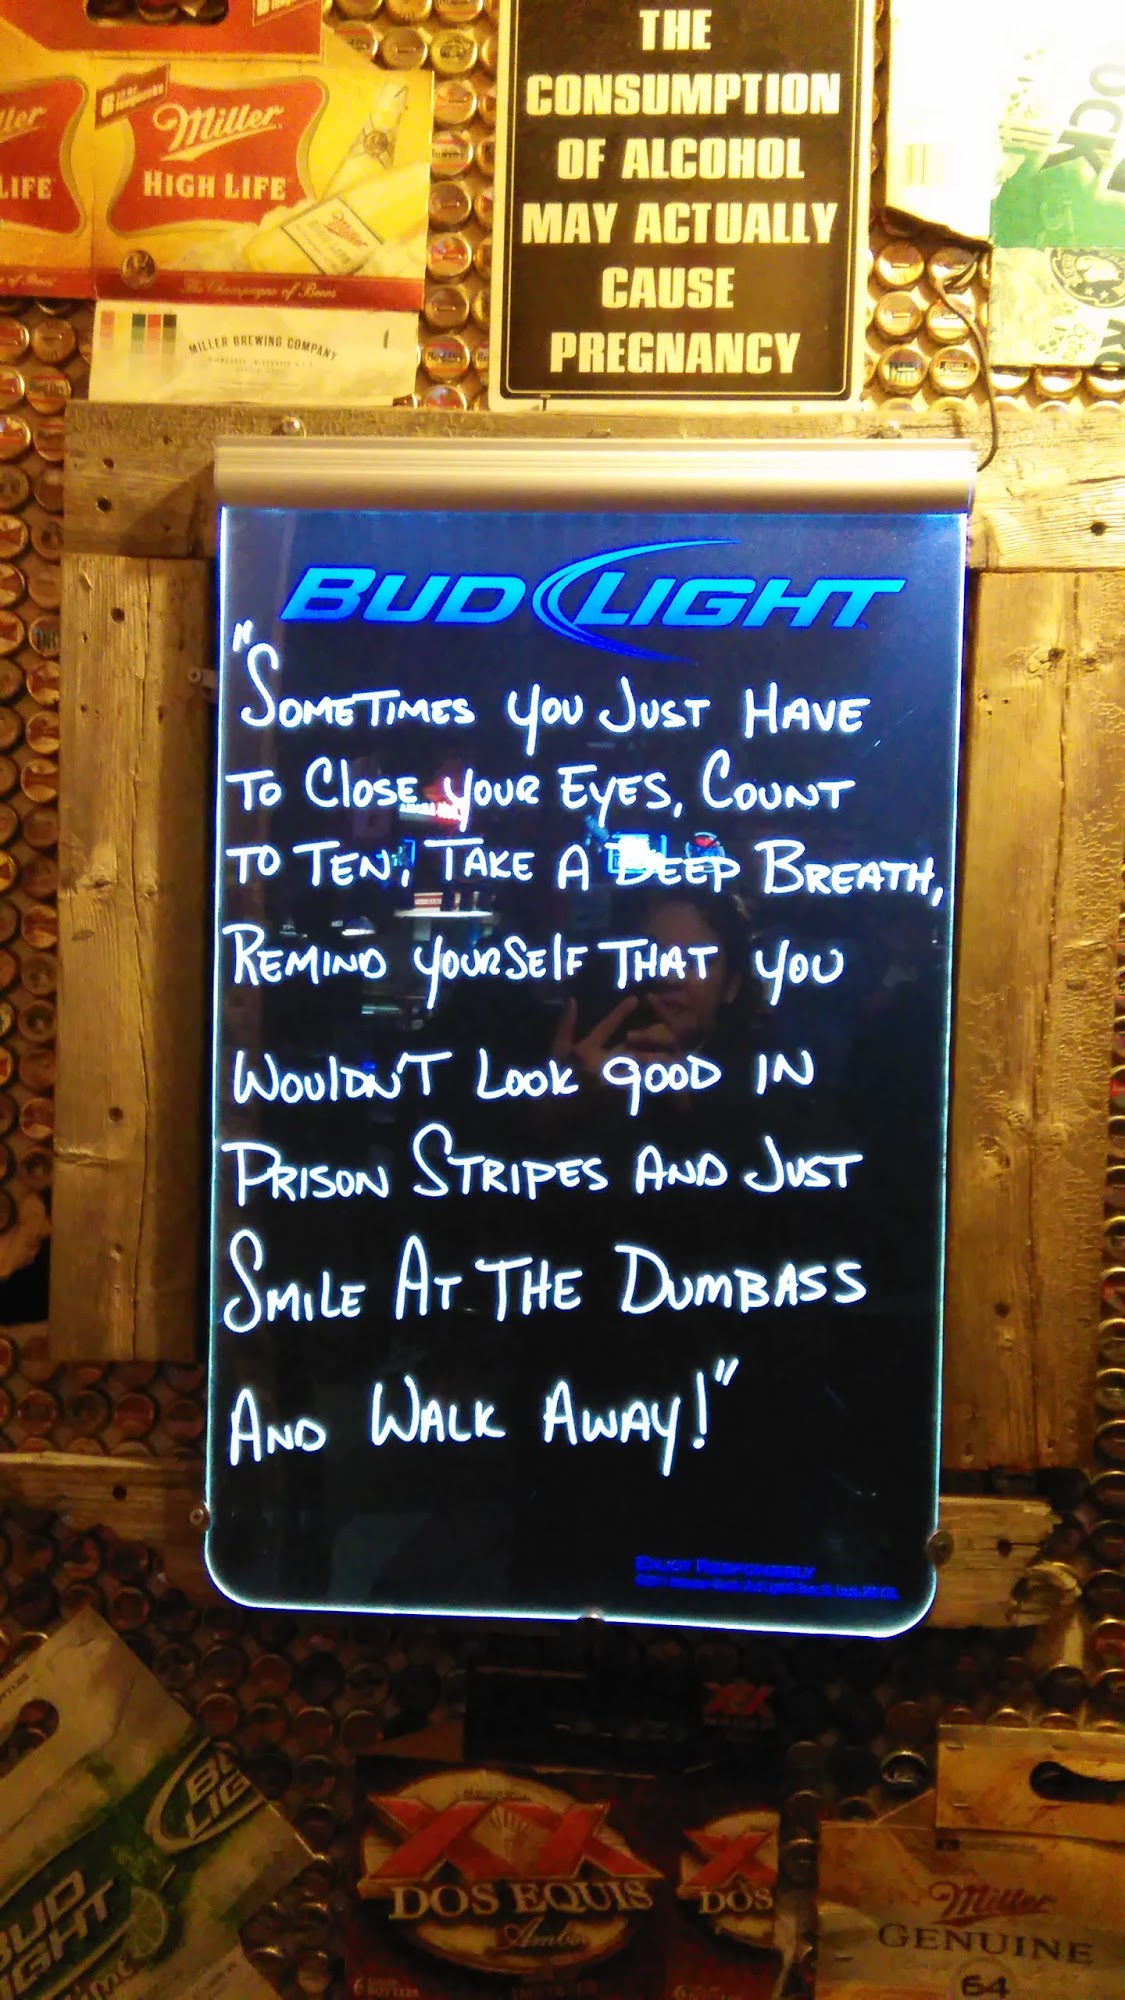 THE
CONSUMPTION
OF ALCOHOL
MAY ACTUALLY
CAUSE
PREGNANCY
Miller
HIGH LIFE
The Champagne of Beers
MILLER BREWING COMPANY
LIFE
BUD LIGHT
"SOMETIMES YOU JUST HAVE
TO CLOSE YOUR EYES, COUNT
TO TEN, TAKE A DEEP BREATH,
REMIND YOURSELF THAT YOU
WOULDN'T LOOK GOOD IN
PRISON STRIPES AND JUST
SMILE AT THE DUMBASS
AND WALK AWAY!"
ENJOY RESPONSIBLY
BUD
LIGHT
XX
DOS EQUIS
DOS
Miller
GENUINE
64